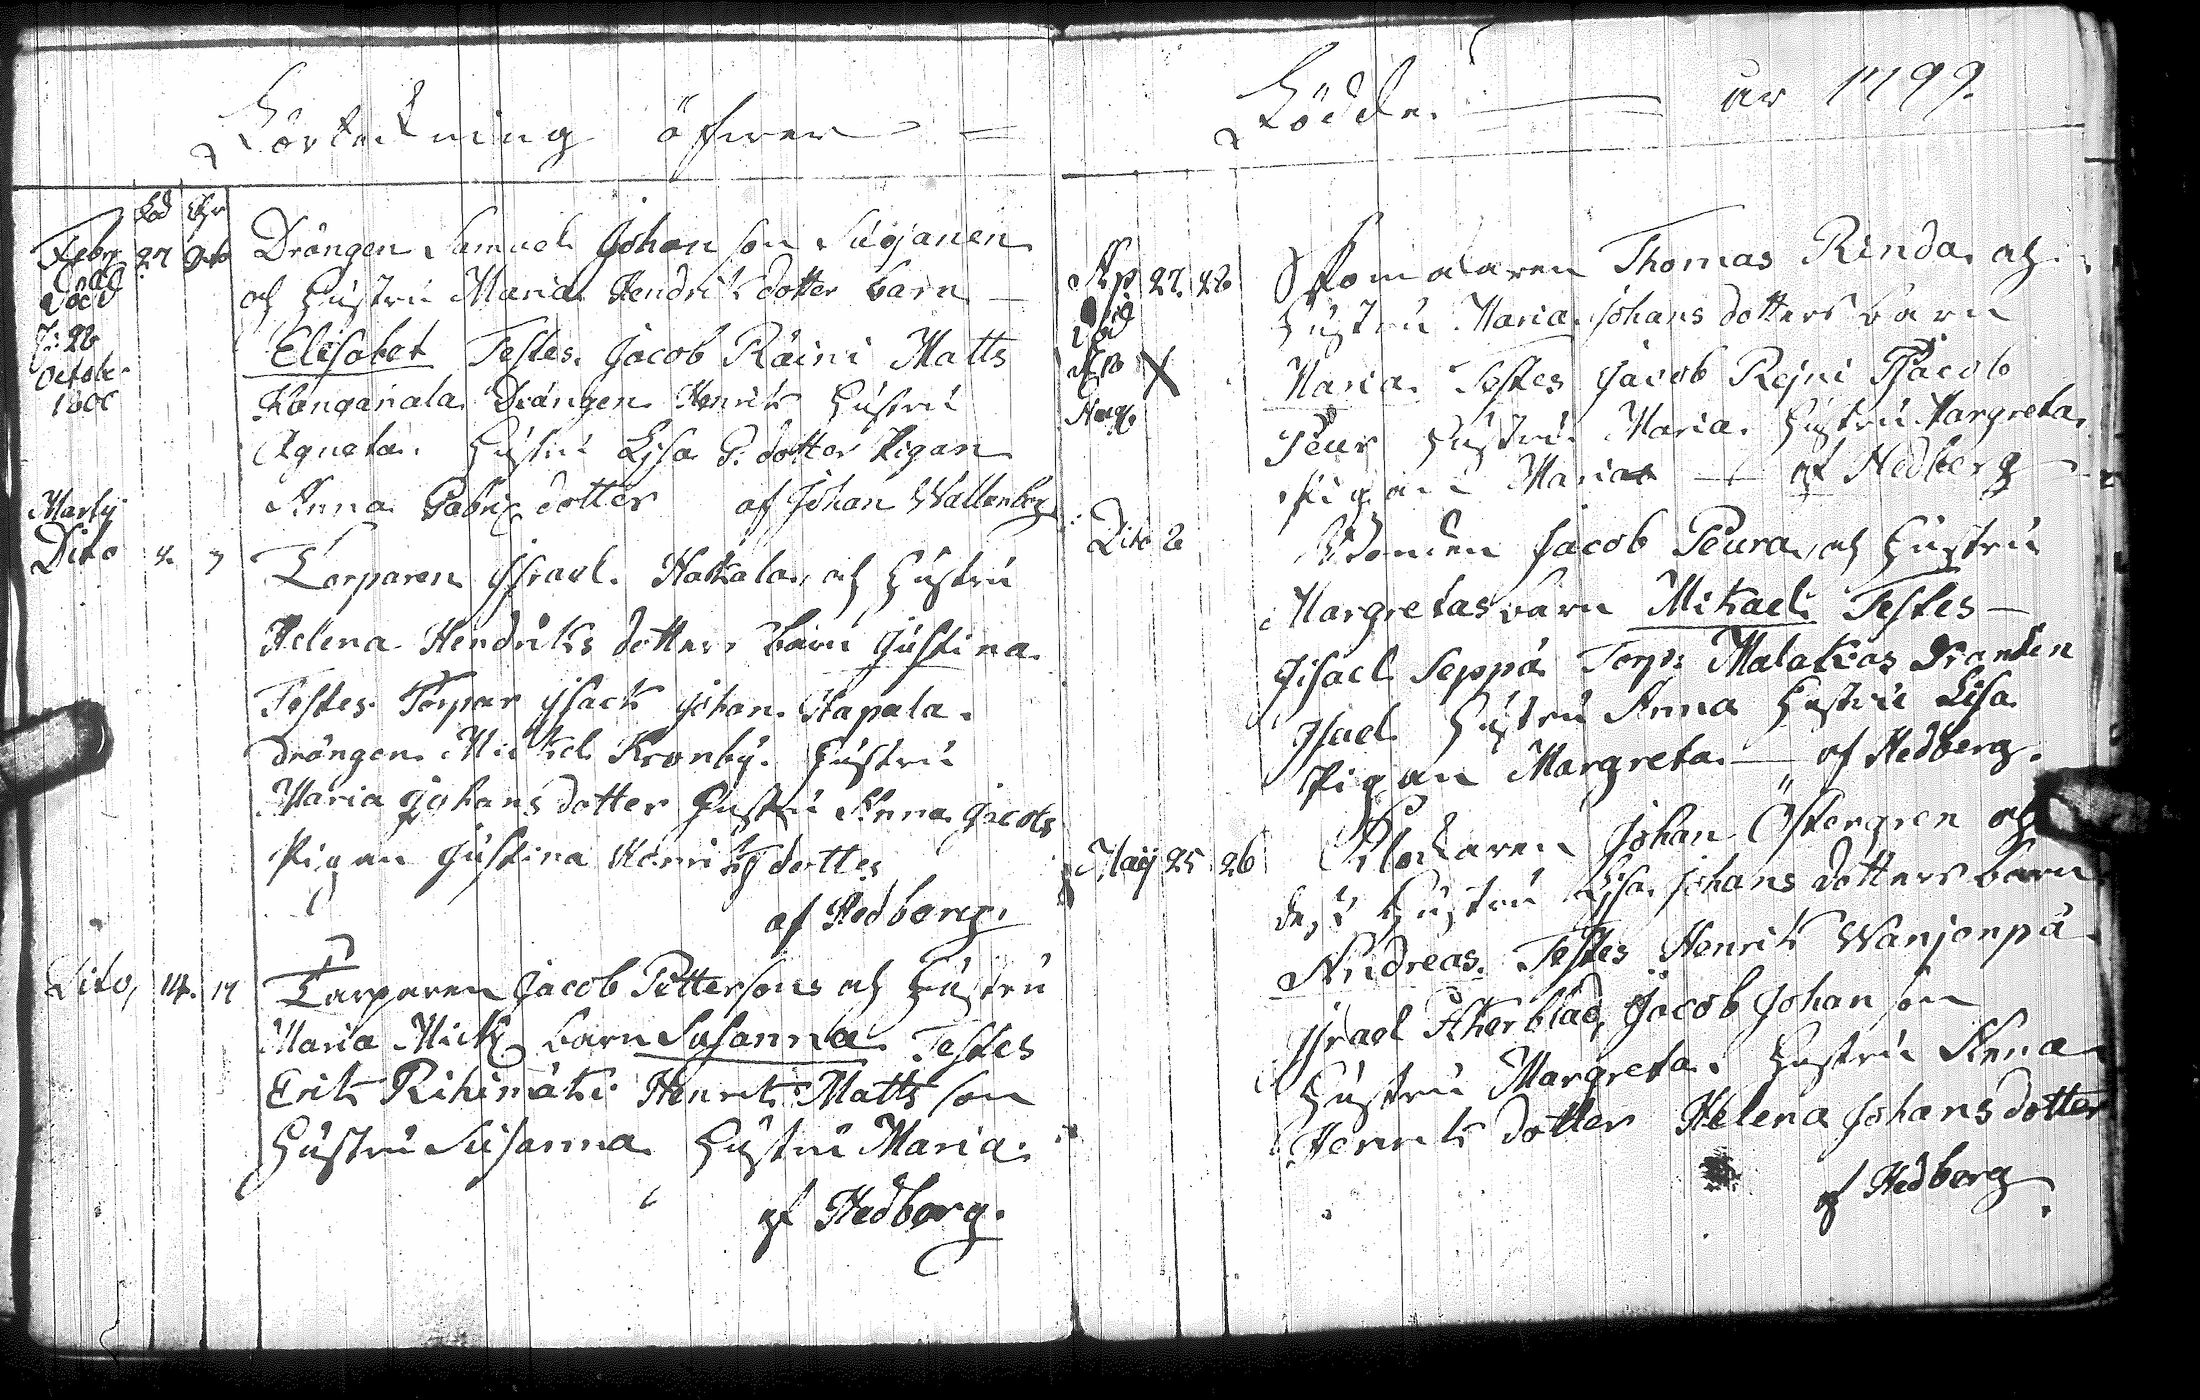 Förteckning öfwer
Föd Chr
Febr 27
Död
J: 26
Octobr
1800
Drängen Samuel Johan son Suojanen
och Hustru Maria Hendriks dotter barn
Elisabet Testes. Jacob Räini Matts
Kangariala Drängen Henrik Hustru
Agneta. Hustru Lisa G. dotter Pigan
Anna Gabri dotter af Johan Wallenberg
Martij
Dito 4. 7 Torparen Jsrael Hakala, och Hustru
Helena Hendriks dotters barn Justina
Testes Torpar Jsack Johan Hapala.
Drängen Mickel Kronby. Hustru
Maria Johans dotter Hustru Anna Jacobs
Pigan Justina Henriks dotter
af Hedberg.
Dito, 14. 17 Torparen Jacob Pettersons och Hustru
Maria Mick barn Susanna Testes
Erik Rihimäki Henrik Matts son
Hustru Susanna Hustru Maria.
af Hedberg.
Födde. år 1799.
Ap 27. 28 Skomakaren Thomas Rinda och
Död
Hustru Maria Johans dotters barn
Maria Testes Jacob Rejni Jacob
Peur Hustru Maria. Hustru Margreta.
Pigan Maria af Hedberg
Dito 2 Bonden Jacob Peura och Hustru
Margretas barn Mikael Testes
Jisael Seppä Torp: Malakias
Jsael Hustru Anna Hustru Lisa
Pigan Margreta af Hedberg.
Maij 25 26 Klockaren Johan Östergren och
dess Hustru Lisa Johans dotters barn
Andreas. Testes Henrik Wanjenpä
Jsrael Åkerblad, Jacob Johan son
Hustru Margreta. Hustru Anna
Henriks dotter Helena Johans dotter
af Hedberg